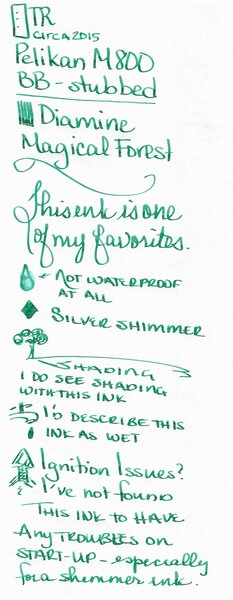 TR
circa 2015
Pelikan M800
BB - stubbed
Diamine
Magical Forest
This ink is one
of my favorites.
← NOT WATERPROOF
AT ALL
SILVER SHIMMER
SHADING
I DO SEE SHADING
WITH THIS INK
I'D DESCRIBE THIS
INK AS WET
Ignition Issues?
I've not found
THIS INK TO HAVE
Any TROUBLES ON
START-UP - especially
for a shimmer ink.